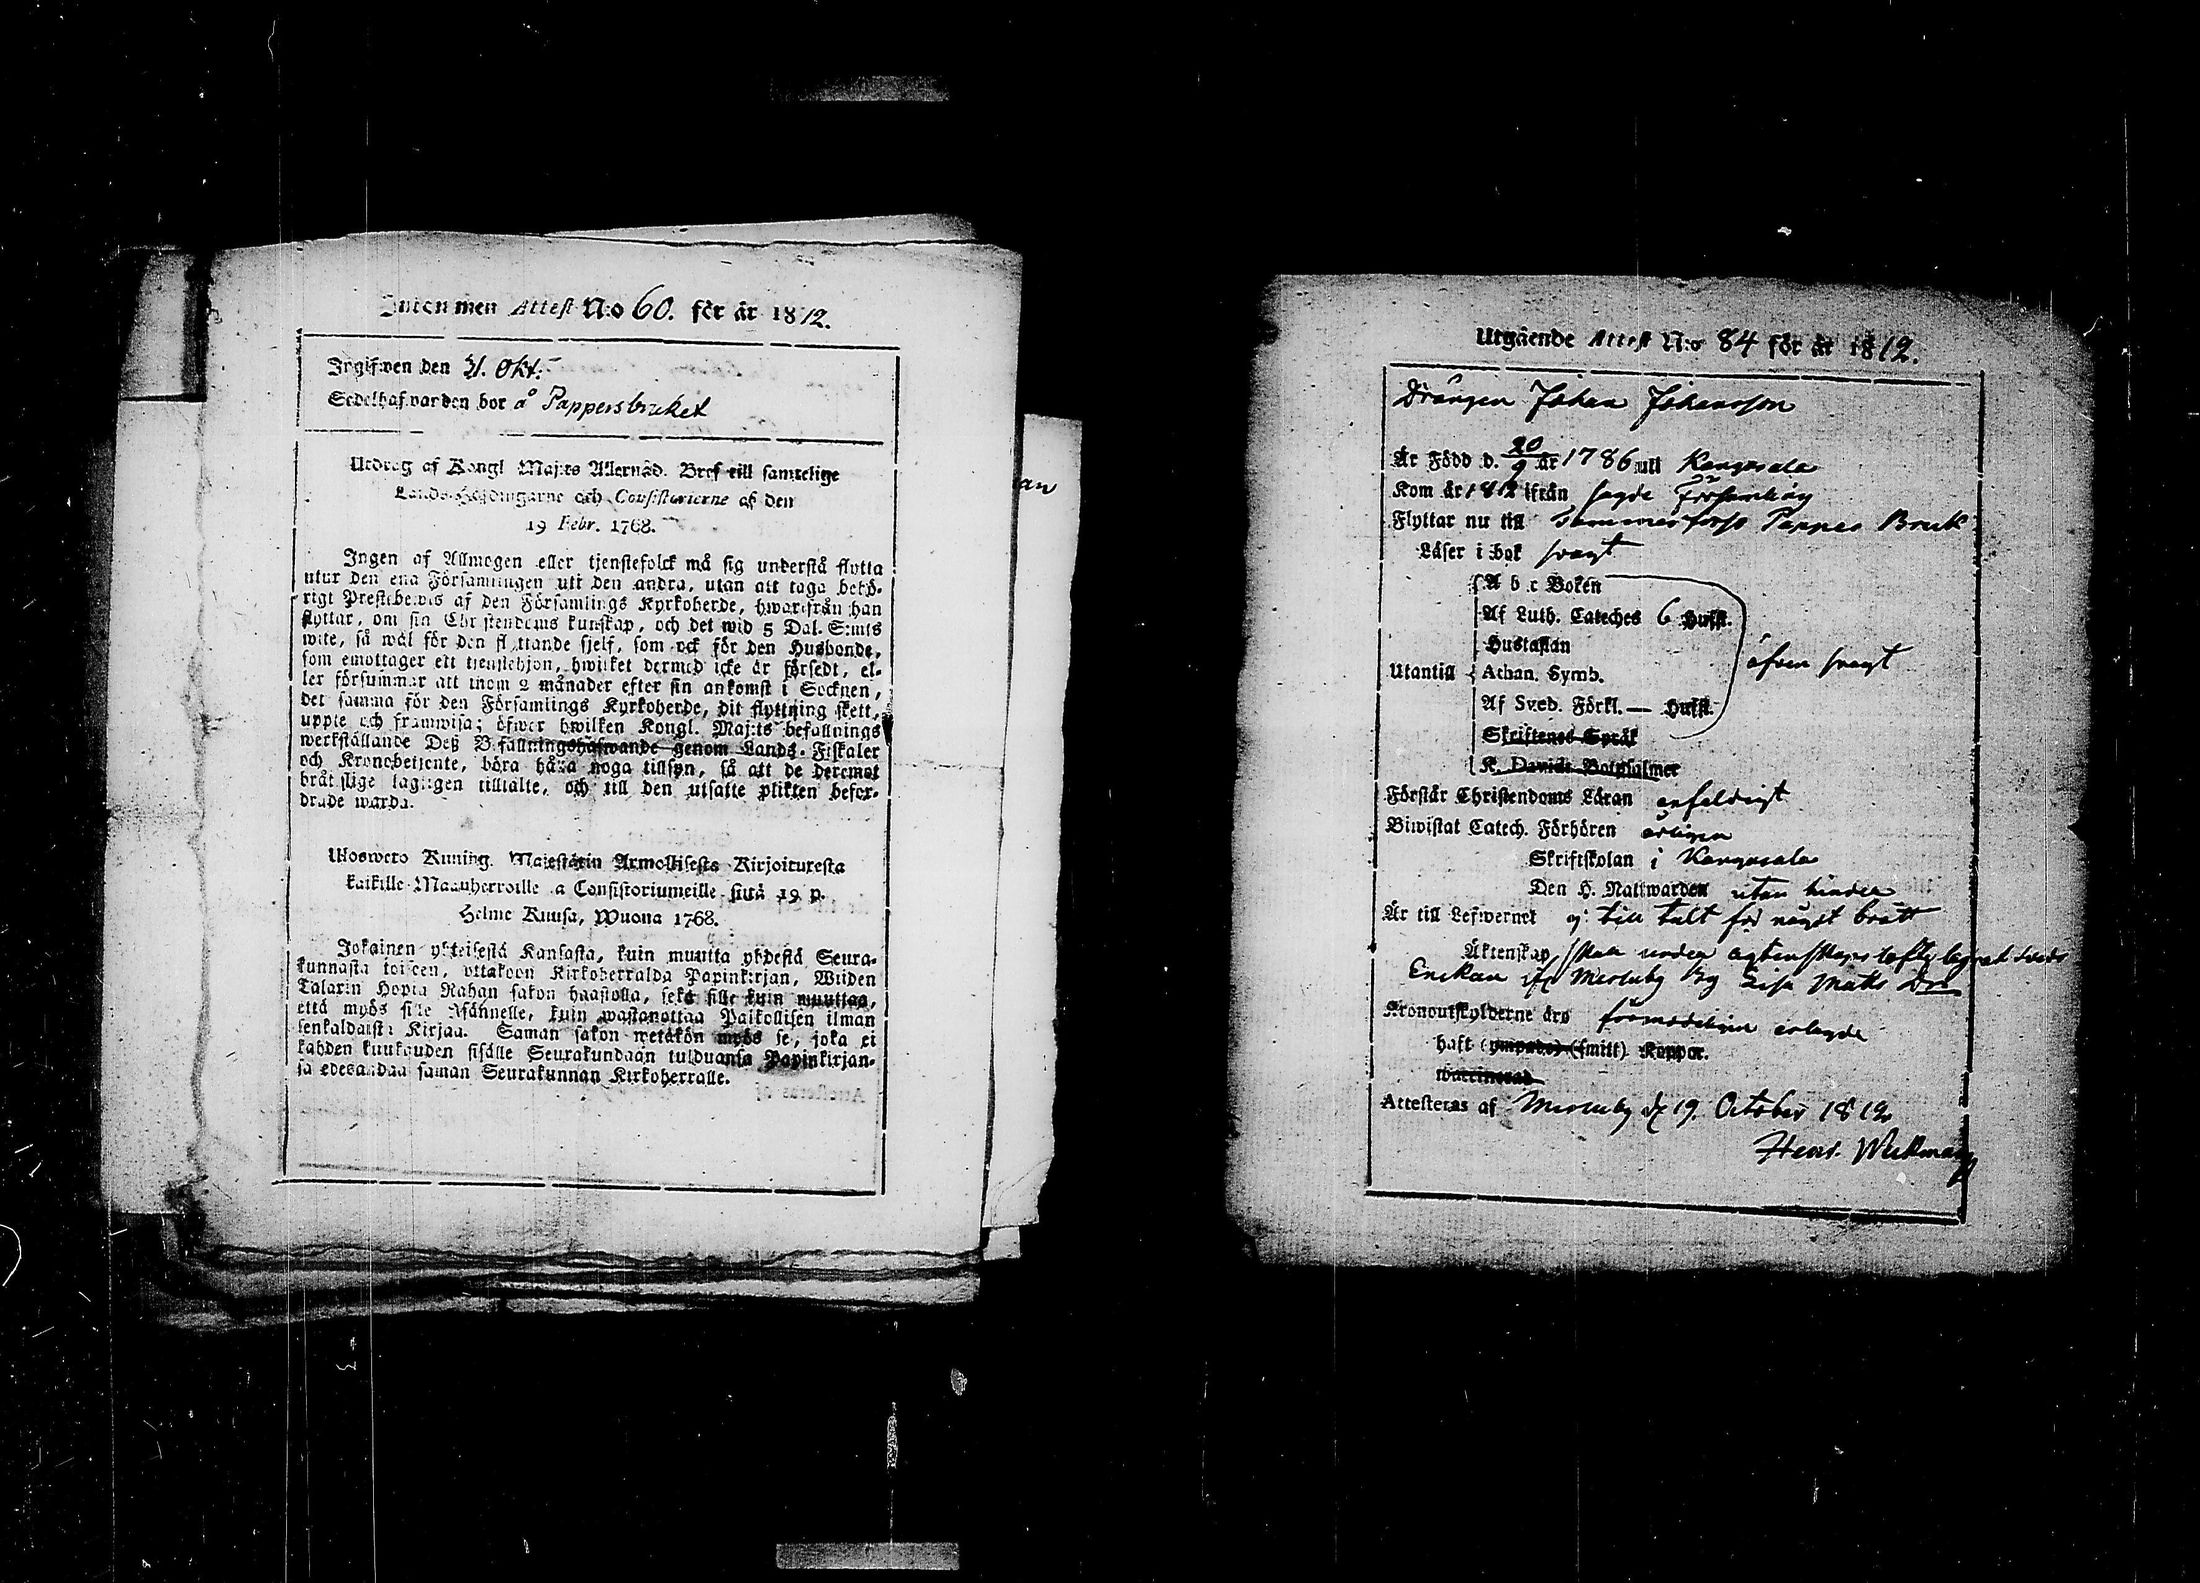 Inkommen Attest N:o 60. för år 1812.
Ingifwen den 21. Okt:
Sedelhafwarden bor å Pappersbruket
Utdrag af Kongl Maj:ts Allernåd. Bref till samtelige
Lands-Höfdingarne och Consistorierne af den
19 Febr. 1768.
Ingen af Allmogen eller tjenstefolck må sig understå flytta
utur den ena Församlingen uti den andra, utan att taga behö-
rigt Prestebewis af den Församlings Kyrkoherde, hwarifrån han
flyttar, om sin Christendoms kunskap, och det wid 5 Dal. S:mts
wite, så wäl för den flyttande sjelf, som ock för den Husbonde,
som emottager ett tjenstehjon, hwilket dermed icke är försedt, el-
ler försummar att inom 2 månader efter sin ankomst i Socknen,
det samma för den Församlings Kyrkoherde, dit flyttning skett,
uppte och framwisa; öfwer hwilken Kongl. Maj:ts befallnings
werkställande Deß Befallningshafwande genom Lands-Fiskaler
och Kronobetjente, böra hafwa noga tillsyn, så att de deremot
brätslige lagligen tilltalte, och till den utsatte plikten befor-
drade warda.
Ulosweto Kuning. Majestätin Armollisesta Kirjoituxesta
kaikille Maanherroille ja Consistoriumeille siitä 19 p.
Helme Kuusa, Wuona 1768.
Jokainen yhteisestä Kansasta, kuin muutta yhdestä Seura-
kunnasta toiseen, ottakoon Kirkoherralda Papinkirjan, Wiiden
Talarin Hopia Rahan sakon haastolla, sekä sille kuin muuttaa,
että myös sille Isännelle, kuin wastanottaa Palkollisen ilman
senkaldaista Kirjaa. Saman sakon wetäkön myös se, joka ei
kahden kuukauden sisälle Seurakundaan tulduansa Papinkirjan-
sa edesandaa saman Seurakunnan Kirkoherralle.
Utgående Attest N:o 84 för år 1812.
Drängen Johan Johansson
Är Född d. 20/9 år 1786 uti Kangasala
Kom år 1812 ifrån sagde Församling
Flyttar nu till Tammerfors Pappers Bruk
Läser i bok svagt
A b c Boken
Af Luth. Cateches 6 Hufst.
Hustaflan
Utantill Athan. Symb. äfven svagt
Af Sveb. Förkl. — Hufst.
Skriftenes Språk
K. Davids Botpsalmer
Förstår Christendoms Läran enfaldigt
Biwistat Catech. Förhören årligen
Skriftskolan i Kangasala
Den H. Nattwarden utan hinder
Är till Lefwernet ej till talt för något brott
Äktenskap skall under ägtenskaps löfte lägrat
Enckan ifr Messuby By Lisa Matts Dr
Kronoutskylderne äro förmodeligen erlagde
haft (ympade) (smitt) Koppor.
waccinerad
Attesteras af Messuby d. 19. October 1812
Henr. Wikman